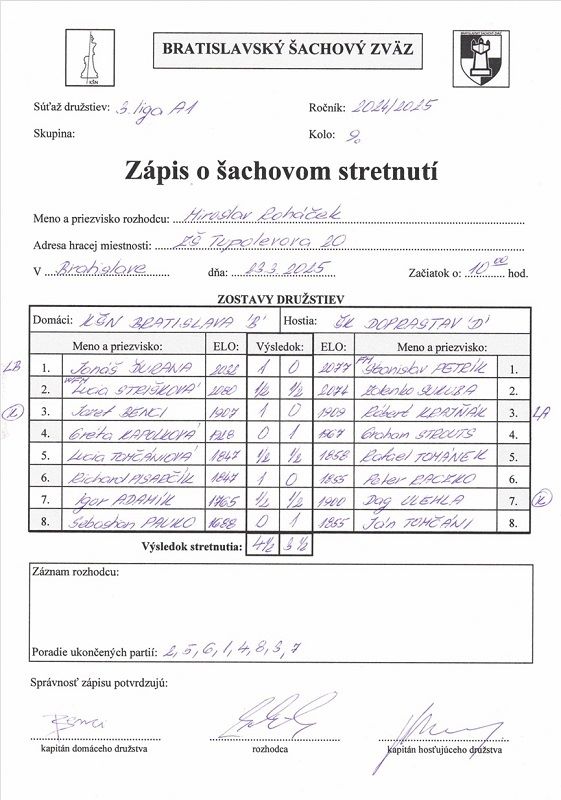 KŠN
BRATISLAVSKÝ ŠACHOVÝ ZVÄZ
BRATISLAVSKÝ ŠACHOVÝ ZVÄZ
Súťaž družstiev: 3. liga A1
Ročník: 2024/2025
Skupina:
Kolo: 9.
Zápis o šachovom stretnutí
Meno a priezvisko rozhodcu: Miroslav Roháček
Adresa hracej miestnosti: ZŠ Tupolevova 20
V Bratislave dňa: 23.3.2025 Začiatok o: 10 00 hod.
ZOSTAVY DRUŽSTIEV
Domáci: KŠN BRATISLAVA 'B' Hostia: ŠK DOPRASTAV 'D'
Meno a priezvisko: ELO: Výsledok: ELO: Meno a priezvisko:
LB 1. Jonáš ĎURANA 2032 1 0 2077 FM Stanislav PETRÍK 1.
2. WFM Lucia STRIŠKOVÁ 2080 ½ ½ 2074 Zdenko 2.
K 3. Jozef BENCI 1907 1 0 1909 Róbert KRATŇÁK 3. LA
4. Gréta KAPOLKOVÁ 0 1 1967 Graham STROUTS 4.
5. Lucia TOMČÁNIOVÁ 1847 ½ ½ 1858 Rafael TOMÁNEK 5.
6. Richard PISARČÍK 1847 1 0 1855 Peter RACZKO 6.
7. Igor ADAMÍK 1765 ½ ½ 1900 Dag ULEHLA 7. K
8. Sebastian PAVKO 1688 0 1 1855 Ján TOMČÁNI 8.
Výsledok stretnutia: 4½ 3½
Záznam rozhodcu:
Poradie ukončených partií: 2, 5, 6, 1, 4, 8, 3, 7
Správnosť zápisu potvrdzujú:
Benci
kapitán domáceho družstva rozhodca kapitán hosťujúceho družstva